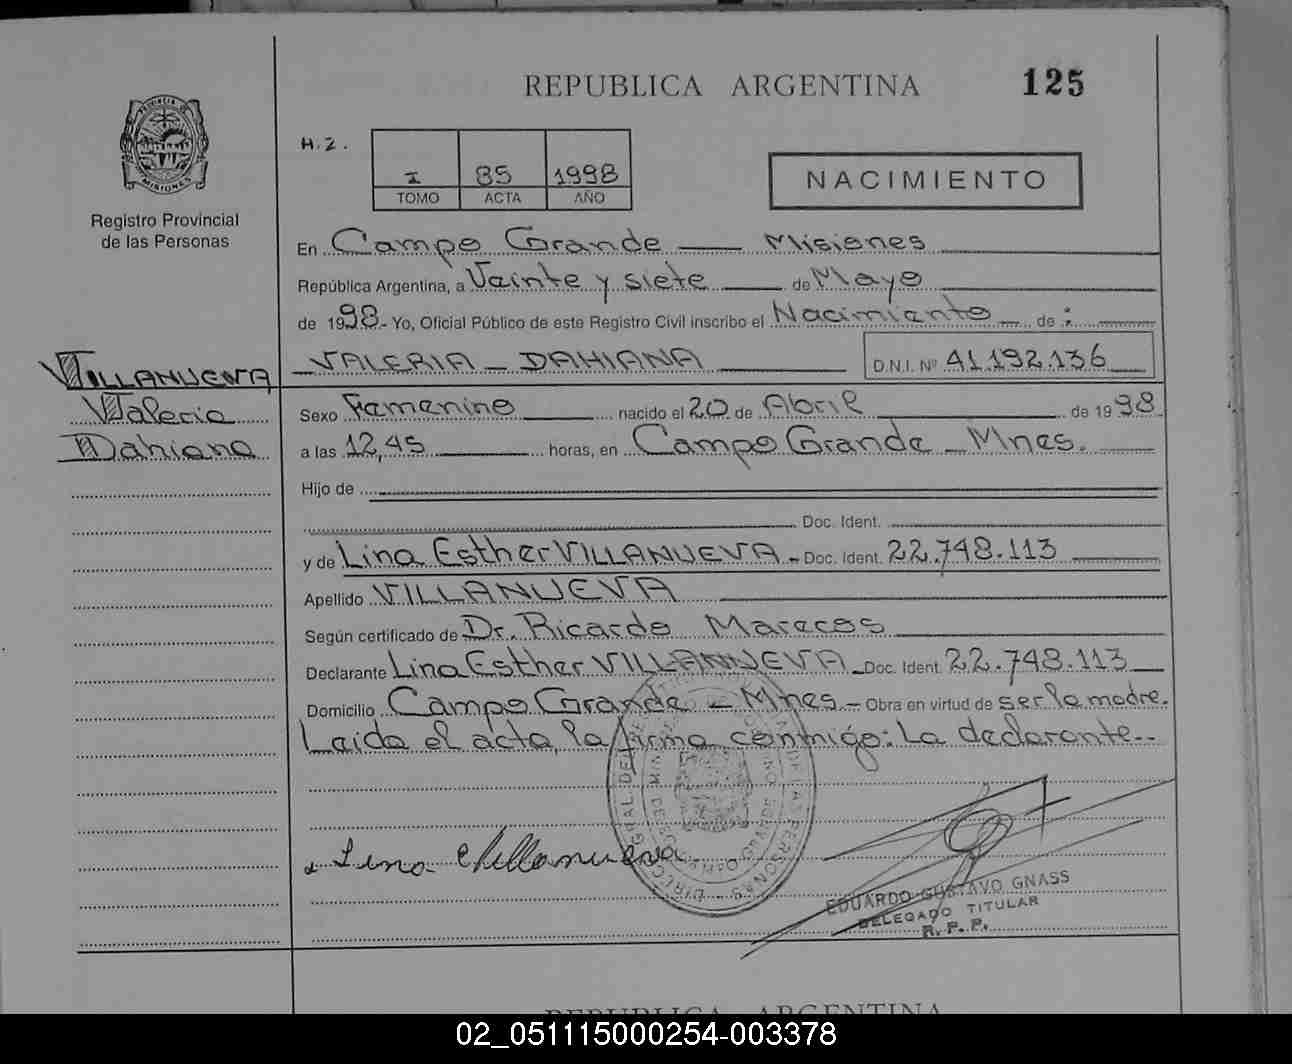 REPUBLICA ARGENTINA 125
PROVINCIA DE MISIONES
Registro Provincial
de las Personas
H.2.
I 85 1998
TOMO ACTA AÑO
NACIMIENTO
En Campo Grande — Misiones
República Argentina, a Veinte y siete de Mayo
de 1998.- Yo, Oficial Público de este Registro Civil inscribo el Nacimiento de :
VALERIA - DAHIANA D.N.I. Nº 41.192.136
VILLANUEVA
Valeria
Dahiana
Sexo Femenino nacido el 20 de Abril de 1998
a las 12,45 horas, en Campo Grande - Mnes.
Hijo de
Doc. Ident.
y de Lina Esther VILLANUEVA - Doc. Ident. 22.748.113
Apellido VILLANUEVA
Según certificado de Dr. Ricardo Marecos
Declarante Lina Esther VILLANUEVA - Doc. Ident. 22.748.113
Domicilio Campo Grande - Mnes.- Obra en virtud de ser la madre.
Leida el acta, la firma conmigo: La declarante..
Lina Villanueva
EDUARDO GUSTAVO GNASS
DELEGADO TITULAR
R. P. P.
REPUBLICA ARGENTINA
02_051115000254-003378